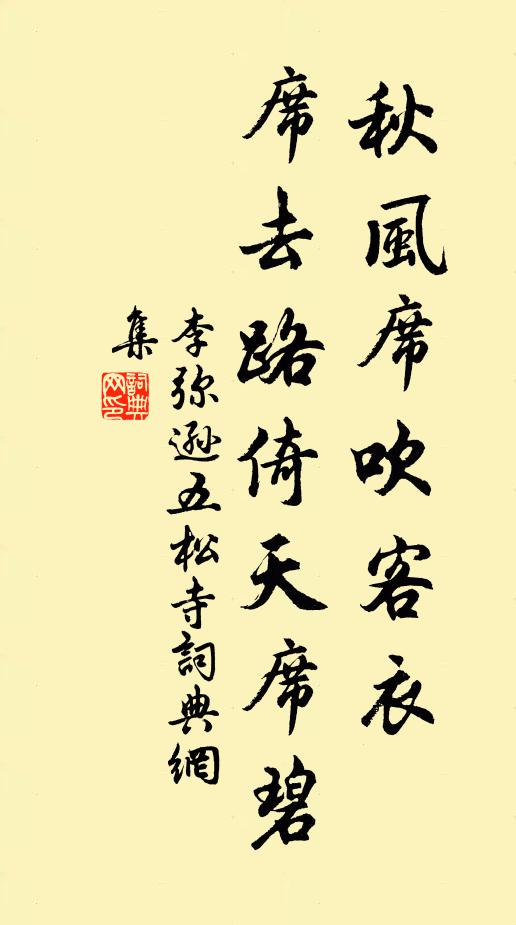 秋風席吹客衣
席去路倚天席碧
李弥遜五松寺詞典網
集
詞典
网印